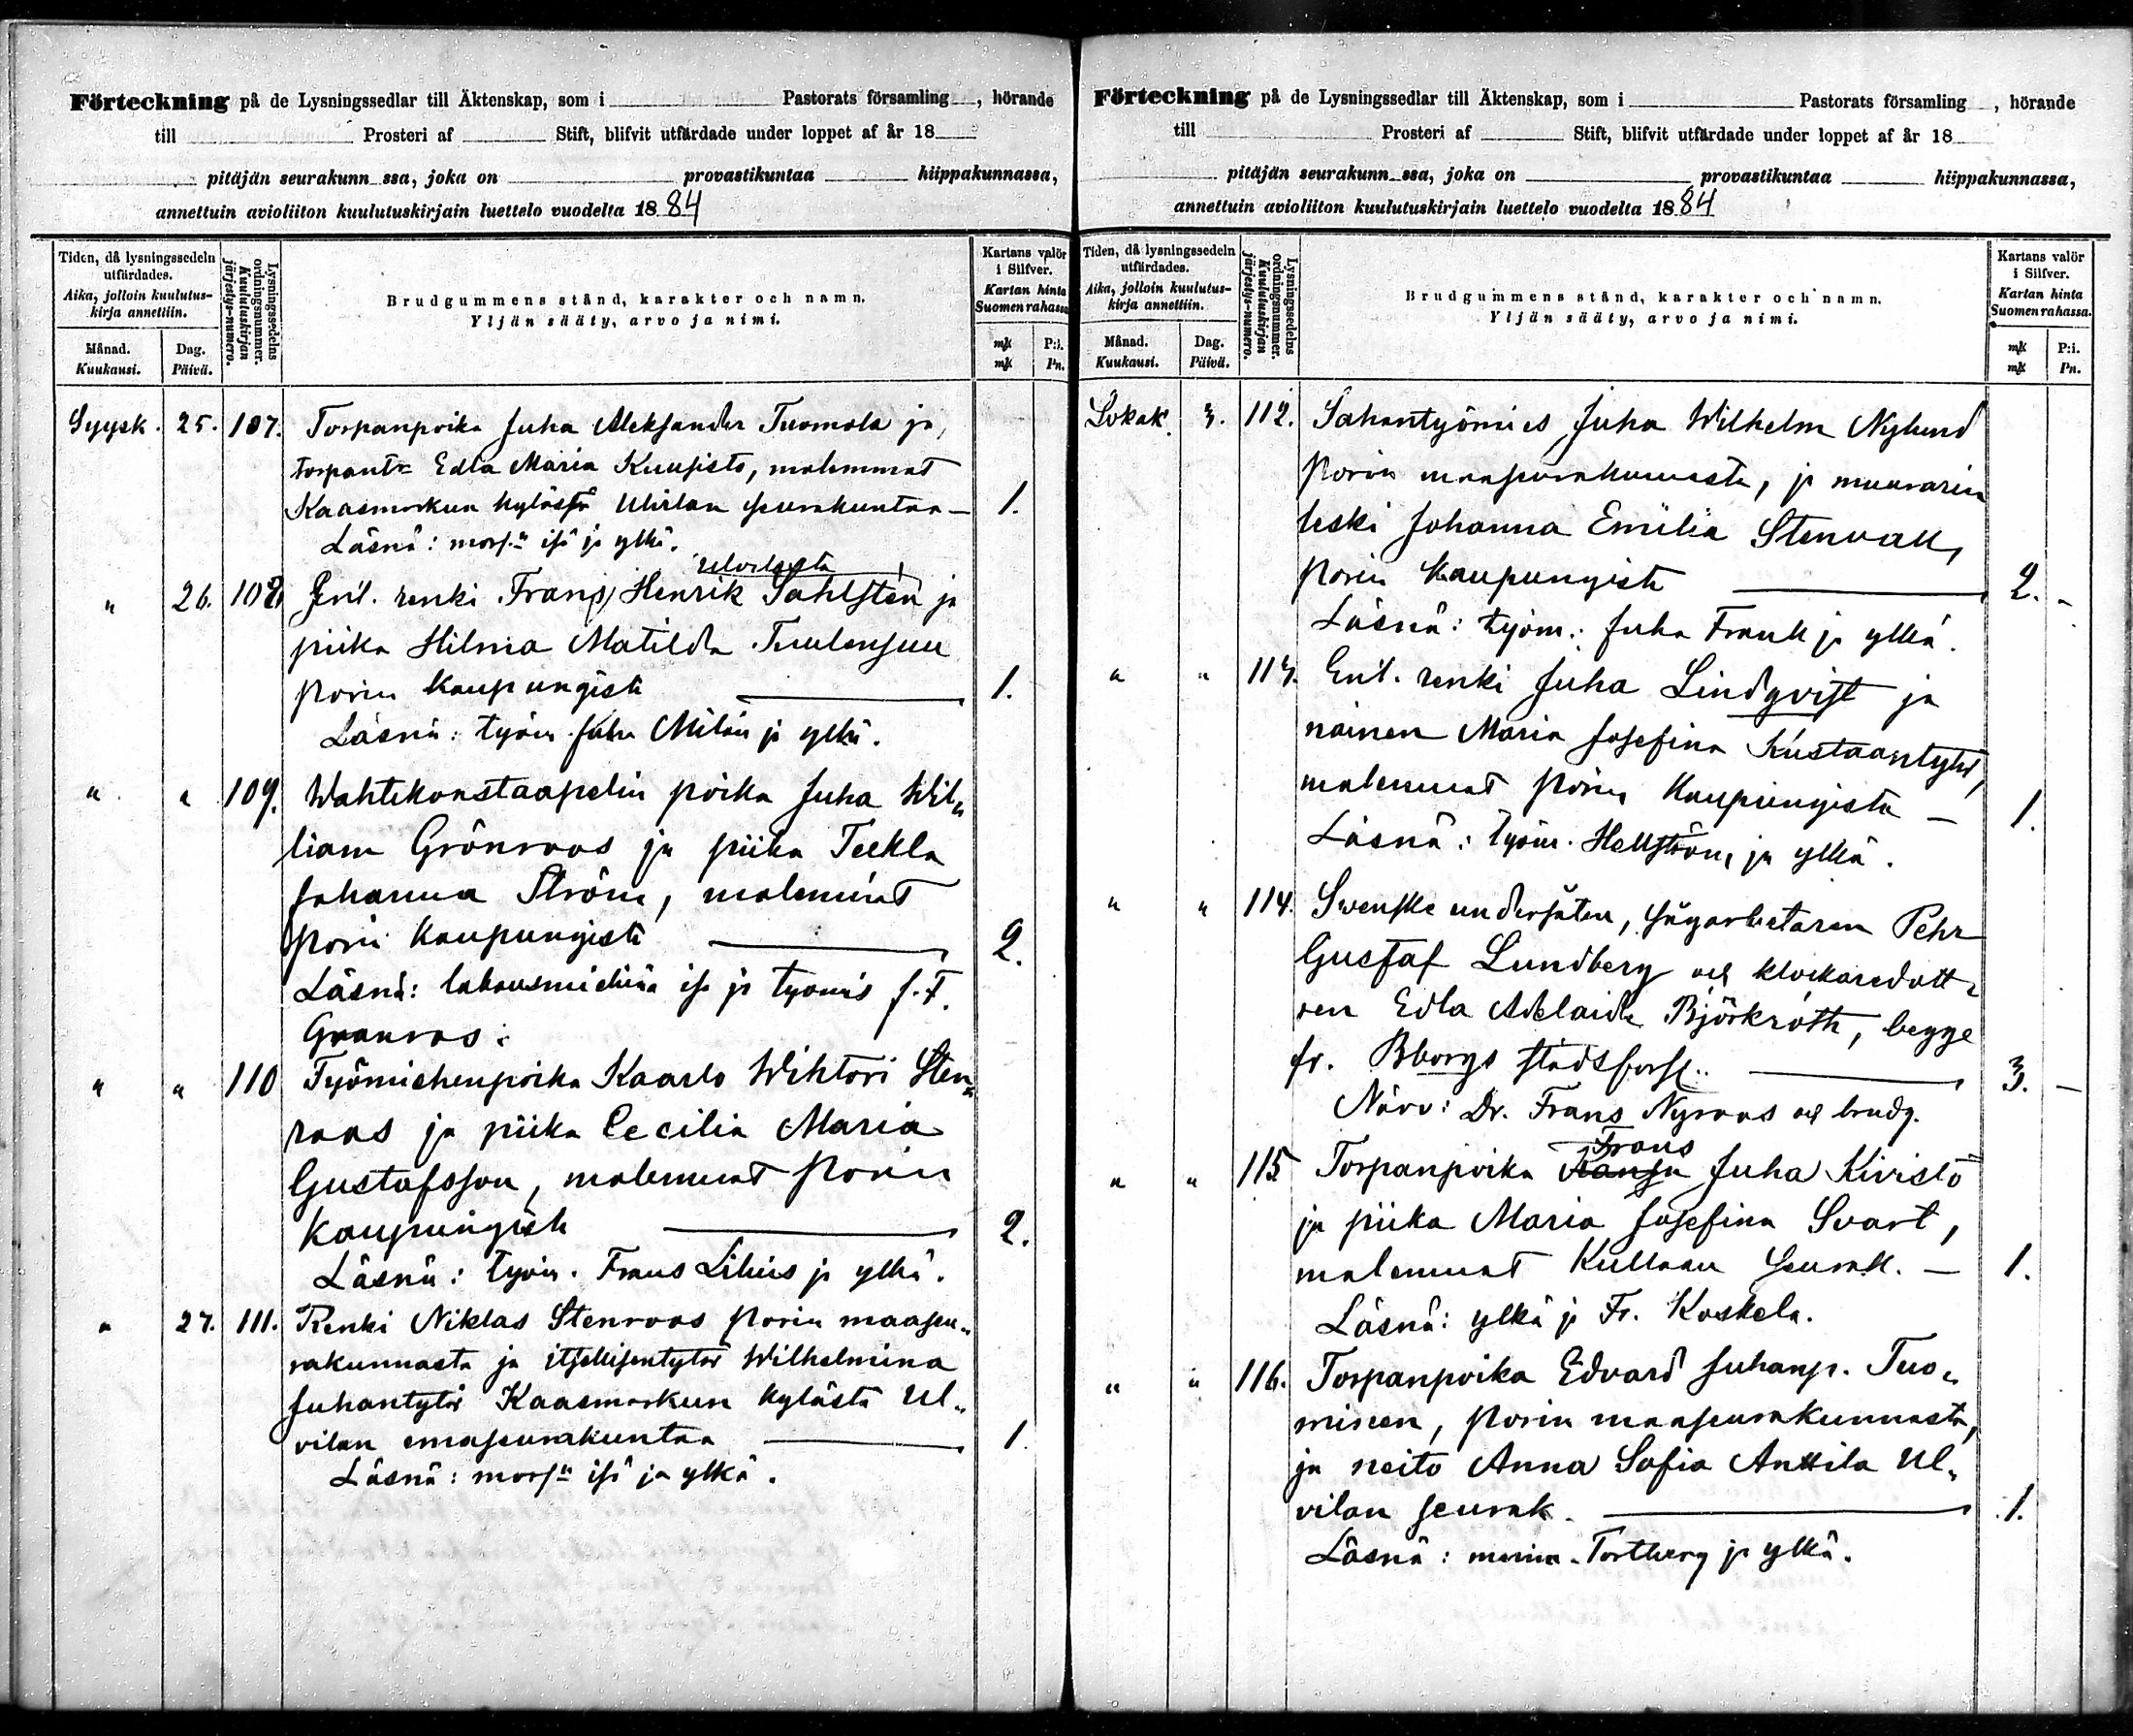 Förteckning på de Lysningssedlar till Äktenskap, som i Pastorats församling , hörande
till Prosteri af Stift, blifvit utfärdade under loppet af år 18
pitäjän seurakunn ssa, joka on provastikuntaa hiippakunnassa,
annettuin avioliiton kuulutuskirjain luettelo vuodelta 1884
Tiden, då lysningssedeln utfärdades.
Aika, jolloin kuulutus-kirja annettiin.
Månad.
Kuukausi.
Dag.
Päivä.
Lysningssedelns ordningsnummer.
Kuulutuskirjan järjestys-numero.
Brudgummens stånd, karakter och namn.
Yljän sääty, arvo ja nimi.
Kartans valör i Silfver.
Kartan hinta Suomen rahassa
mk P:i.
mk Pn.
Syysk. 25. 107. Torpanpoika Juha Aleksander Tuomola ja,
torpantr Edla Maria Kuusisto, molemmat
Kaasmarkun kylästä Ulvilan seurakuntaa — 1.
Läsnä: mors:n isä ja ylkä.
Ulvilasta
" 26. 108. Enl. renki Frans Henrik Sahlstén ja
piika Hilma Matilda Tuulensuu
Porin kaupungista 1.
Läsnä: työm. Juha Milán ja ylkä.
" " 109. Wahtikonstaapelin poika Juha Wil„
liam Grönroos ja piika Teekla
Johanna Ström, molemmat
Porin kaupungista 2.
Läsnä: isä ja työmies J. F.
Granroos.
" " 110 Työmiehenpoika Kaarlo Wihtori Sten„
roos ja piika Cecilia Maria
Gustafsson, molemmat Porin
kaupungista 2.
Läsnä: työm. Frans Lilius ja ylkä.
" 27. 111. Renki Niklas Stenroos Porin maaseu„
rakunnasta ja itsellisentytär Wilhelmina
Juhantytär Kaasmarkun kylästä Ul„
vilan emäseurakuntaa 1
Läsnä: mors:n isä ja ylkä.
Förteckning på de Lysningssedlar till Äktenskap, som i Pastorats församling , hörande
till Prosteri af Stift, blifvit utfärdade under loppet af år 18
pitäjän seurakunn ssa, joka on provastikuntaa hiippakunnassa,
annettuin avioliiton kuulutuskirjain luettelo vuodelta 1884
Tiden, då lysningssedeln utfärdades.
Aika, jolloin kuulutus-kirja annettiin.
Månad.
Kuukausi.
Dag.
Päivä.
Lysningssedelns ordningsnummer.
Kuulutuskirjan järjestys-numero.
Brudgummens stånd, karakter och namn.
Yljän sääty, arvo ja nimi.
Kartans valör i Silfver.
Kartan hinta Suomen rahassa.
mk P:i.
mk Pn.
Lokak. 3. 112. Sahantyömies Juha Wilhelm Nylund
Porin maaseurakunnasta, ja muurarin
leski Johanna Emilia Stenvall,
Porin kaupungista 2. -
Läsnä: työm: Juha Frank ja ylkä.
" " 113. Enl. renki Juha Lindqvist ja
nainen Maria Josefina Kustaantytär,
molemmat Porin kaupungista — 1.
Läsnä: työm. Hellström, ja ylkä.
" " 114. Swenske undersåten, sågarbetaren Pehr
Gustaf Lundberg och klockaredott„
ren Edla Adelaide Björkroth, begge
fr. Bborgs stadsförs:. 3. —
Närv: Dr. Frans Nyroos och brudg.
Frans
" " 115 Torpanpoika Ransu Juha Kivistö
ja piika Maria Josefina Svart,
molemmat Kullaan Seurak. — 1.
Läsnä: ylkä ja Fr. Koskela.
" " 116. Torpanpoika Edvard Juhanp. Tuo„
minen, Porin maaseurakunnasta,
ja neito Anna Sofia Anttila Ul„
vilan seurak. 1.
Läsnä: Tortberg ja ylkä.